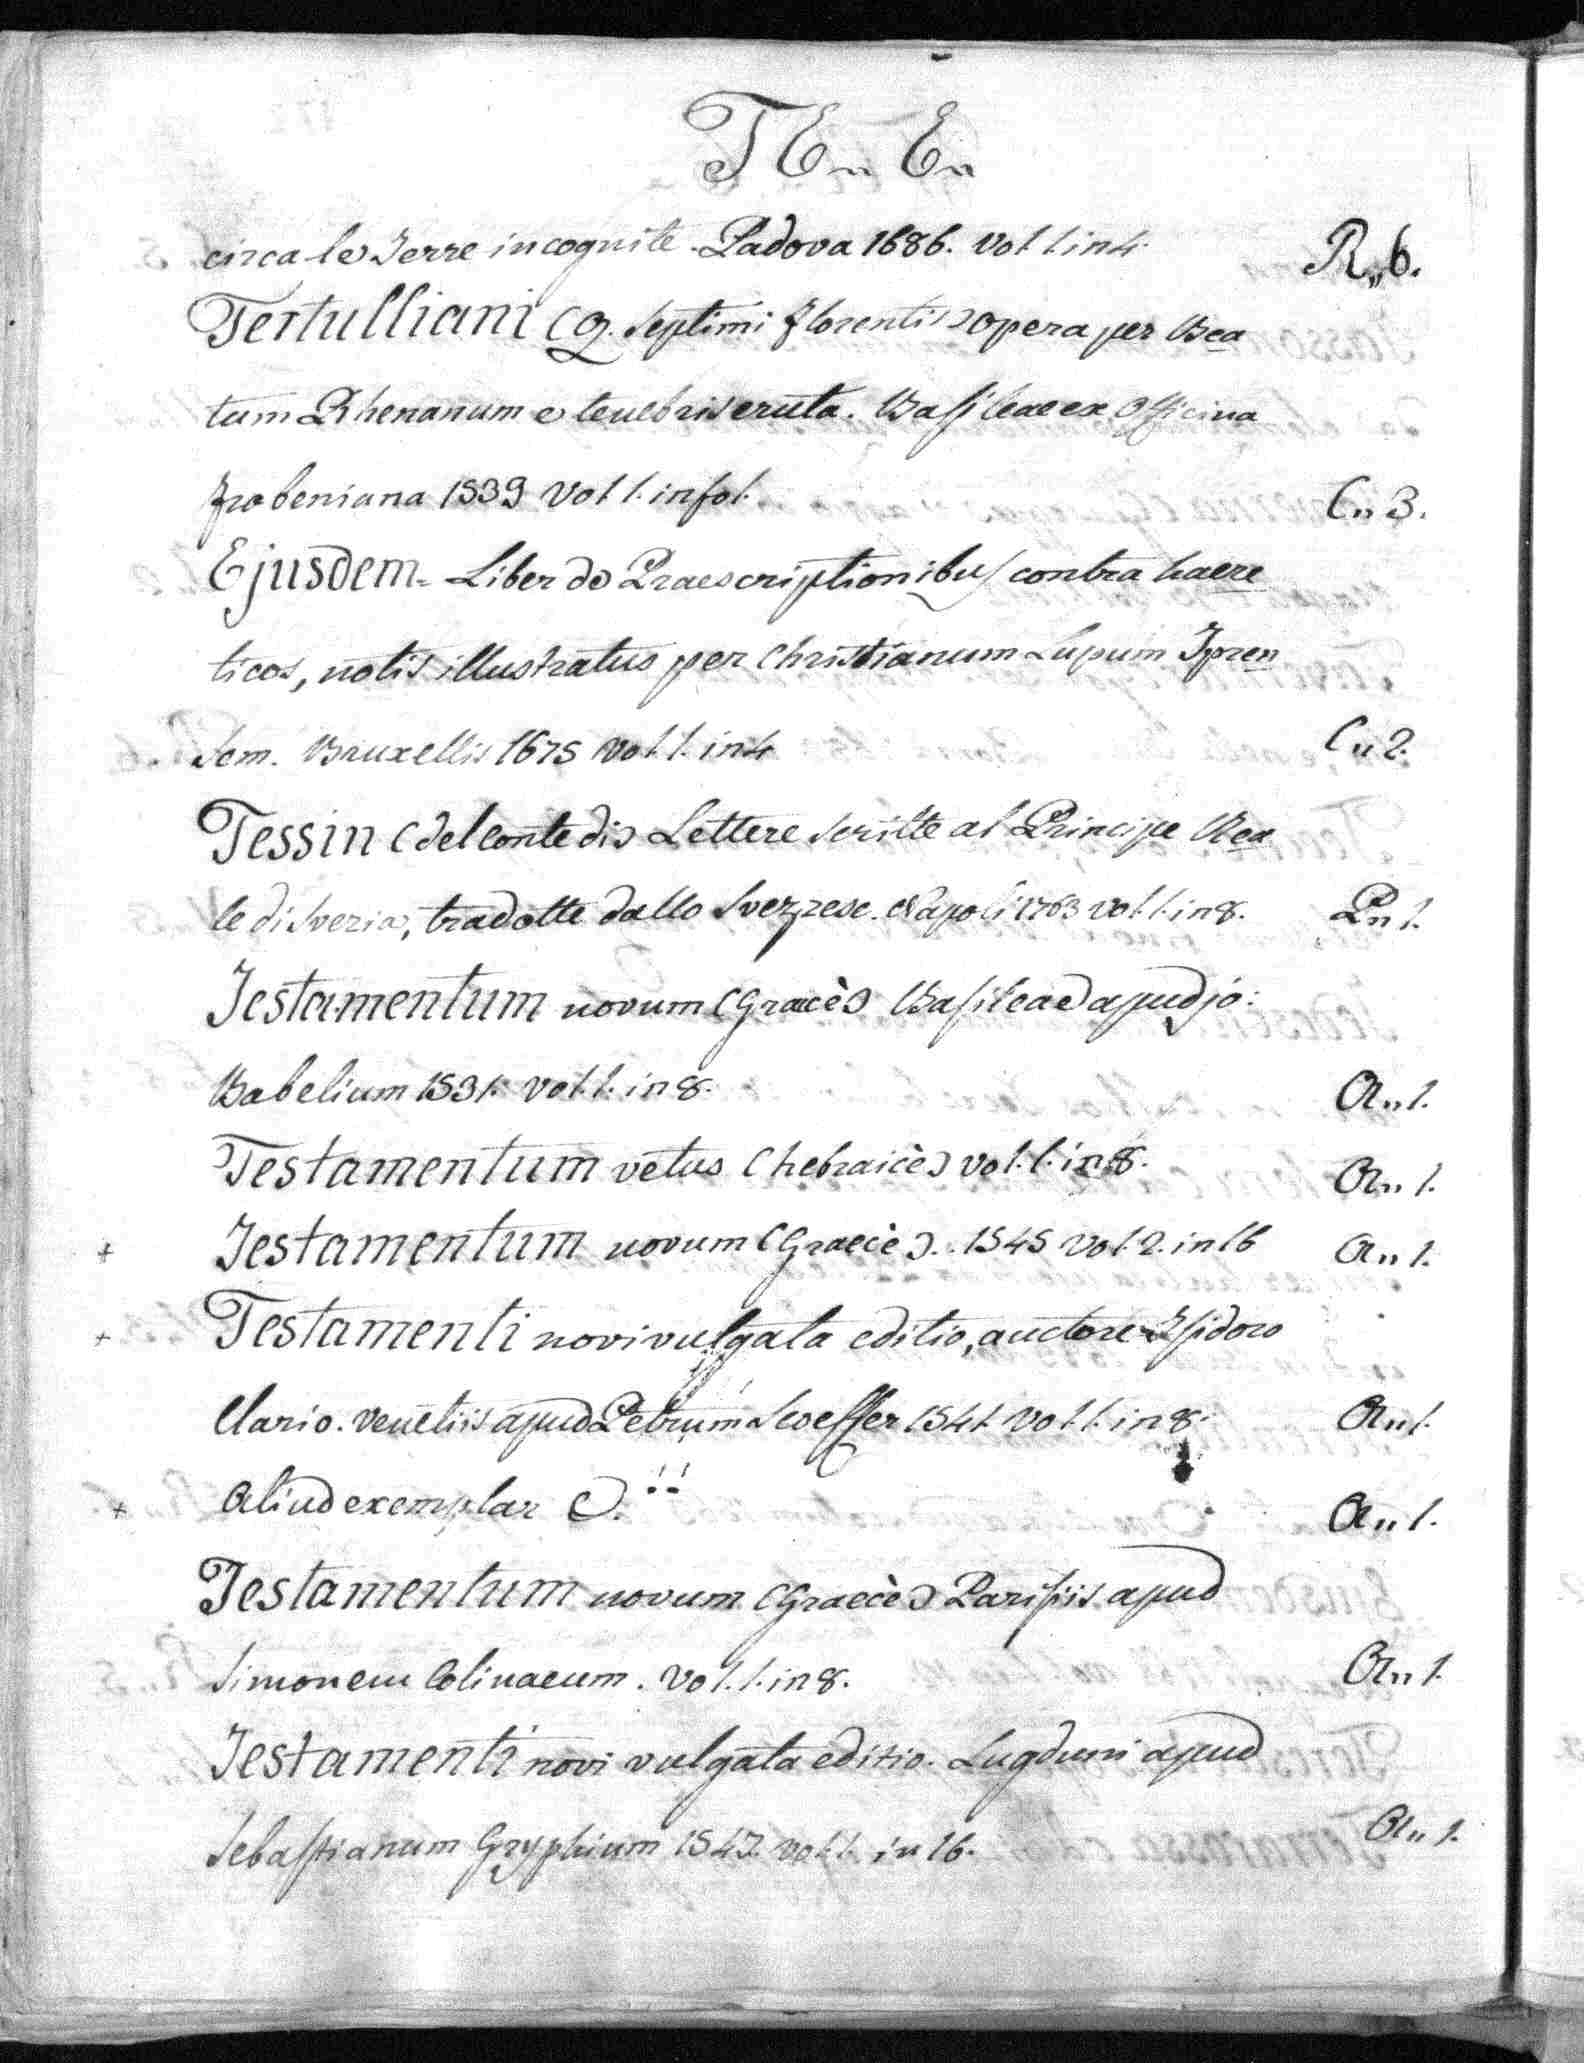 T E„ E„
circa le Terre incognite. Padova 1686. vol 1. in 4. R„6.
Tertulliani (Q. Septimi Florentis) opera per Bea
tum Rhenanum e tenebris eruta. Basileae ex Officina
Frobeniana 1539 vol 1. in fol. C„3.
Ejusdem= Liber de Praescriptionibus contra haere
ticos, notis illustratus per Christianum Lupum Ipren
sem. Bruxellis 1675 vol 1. in 4 C„2.
Tessin (del Conte di) Lettere scritte al Principe Rea
le di Svezia, tradotte dallo Svezzese. Napoli 1763 vol. 1. in 8. P„1.
Testamentum novum (Graecè) Basileae apud jo:
Babelium 1531. vol. 1. in 8. A„1.
Testamentum vetus (hebraicè) vol. 1. in 8. A„1.
+ Testamentum novum (Graecè). 1545 vol. 2. in 16 A„1.
+ Testamenti novi vulgata editio, auctore Isidoro
Clario. Venetiis apud Petrum Scoeffer 1541 vol. 1. in 8. A„1.
+ Aliud exemplar A„1.
Testamentum novum (Graecè) Parisiis apud
Simonem Colinaeum. vol. 1. in 8. A„1.
Testamenti novi vulgata editio. Lugduni apud
Sebastianum Gryphium vol. 1. in 16. A„1.